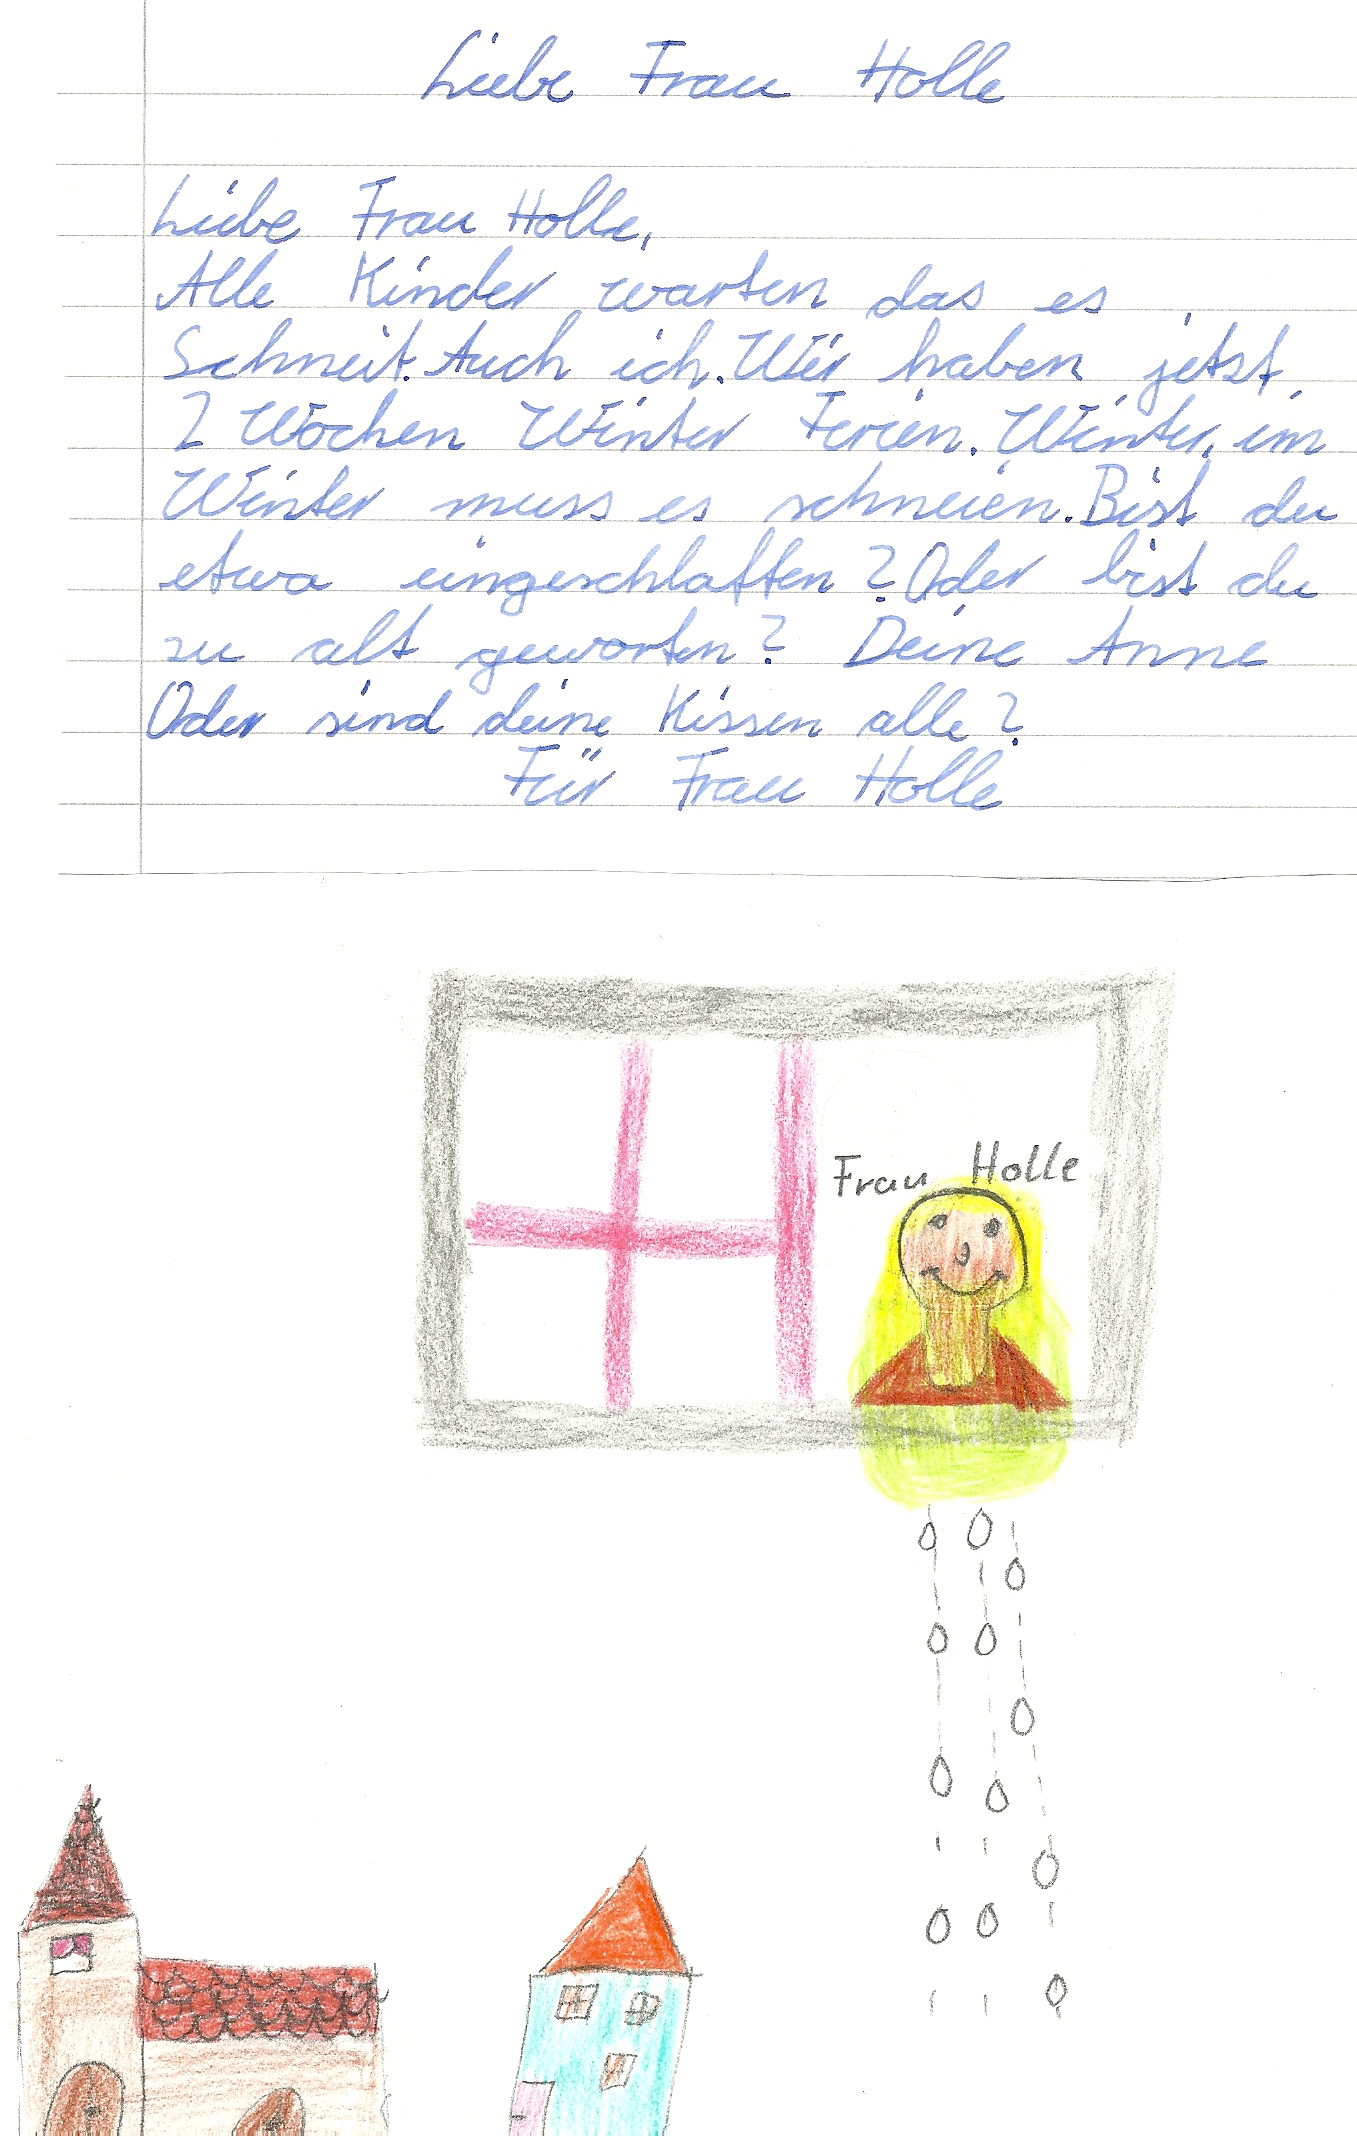 Liebe Frau Holle
Liebe Frau Holle,
Alle Kinder warten das es
Schneit. Auch ich. Wir haben jetzt
2 Wochen Winter Ferien. Winter, im
Winter muss es schneien. Bist du
etwa eingeschlaffen? Oder bist du
zu alt geworten? Deine Anne
Oder sind deine Kissen alle?
Für Frau Holle
Frau Holle